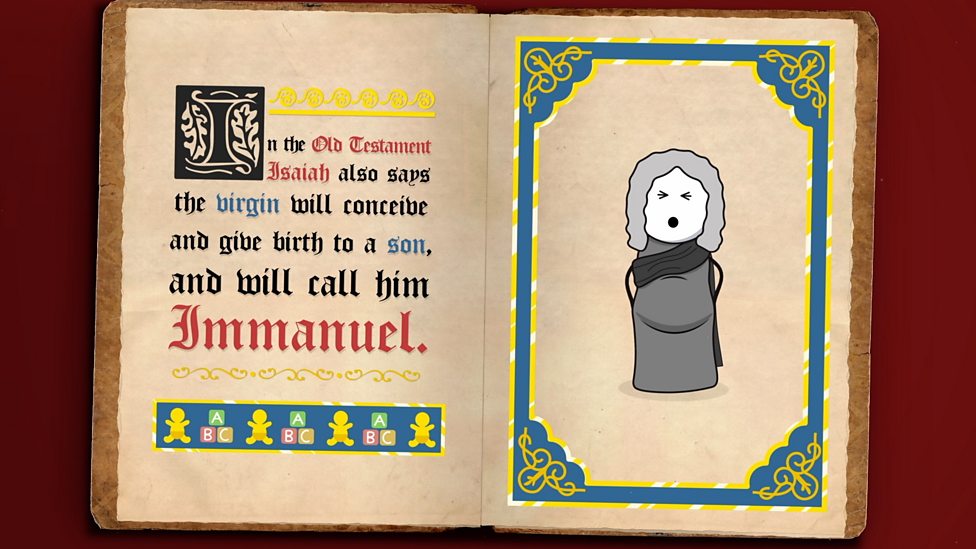 In the Old Testament
Isaiah also says
the virgin will conceive
and give birth to a son,
and will call him
Immanuel.
A A A
BC BC BC